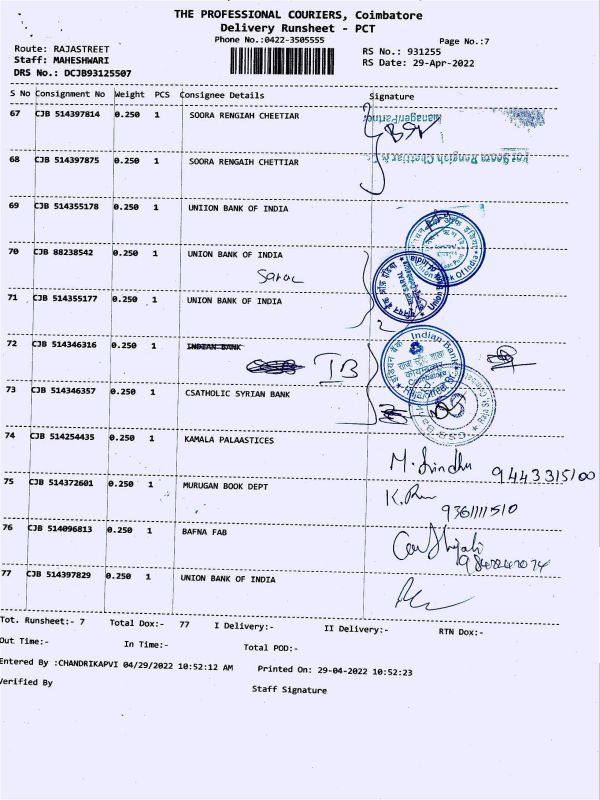 THE PROFESSIONAL COURIERS, Coimbatore
Delivery Runsheet - PCT
Phone No.:0422-3505555
Page No.:7
Route: RAJASTREET
RS No.: 931255
Staff: MAHESHWARI
RS Date: 29-Apr-2022
DRS No.: DCJB93125507
S No Consignment No Weight PCS Consignee Details Signature
67 CJB 514397814 0.250 1 SOORA RENGIAH CHEETIAR
Manager/Partner
68 CJB 514397875 0.250 1 SOORA RENGAIH CHETTIAR
69 CJB 514355178 0.250 1 UNIION BANK OF INDIA
70 CJB 88238542 0.250 1 UNION BANK OF INDIA
Sarac
71 CJB 514355177 0.250 1 UNION BANK OF INDIA
72 CJB 514346316 0.250 1 INDIAN BANK
IB
Indian Bank
73 CJB 514346357 0.250 1 CSATHOLIC SYRIAN BANK
74 CJB 514254435 0.250 1 KAMALA PALAASTICES
M. Sindhu 9443315100
75 CJB 514372601 0.250 1 MURUGAN BOOK DEPT
9361111510
76 CJB 514096813 0.250 1 BAFNA FAB
77 CJB 514397829 0.250 1 UNION BANK OF INDIA
Tot. Runsheet:- 7 Total Dox:- 77 I Delivery:- II Delivery:- RTN Dox:-
Out Time:- In Time:- Total POD:-
Entered By :CHANDRIKAPVI 04/29/2022 10:52:12 AM Printed On: 29-04-2022 10:52:23
Verified By
Staff Signature